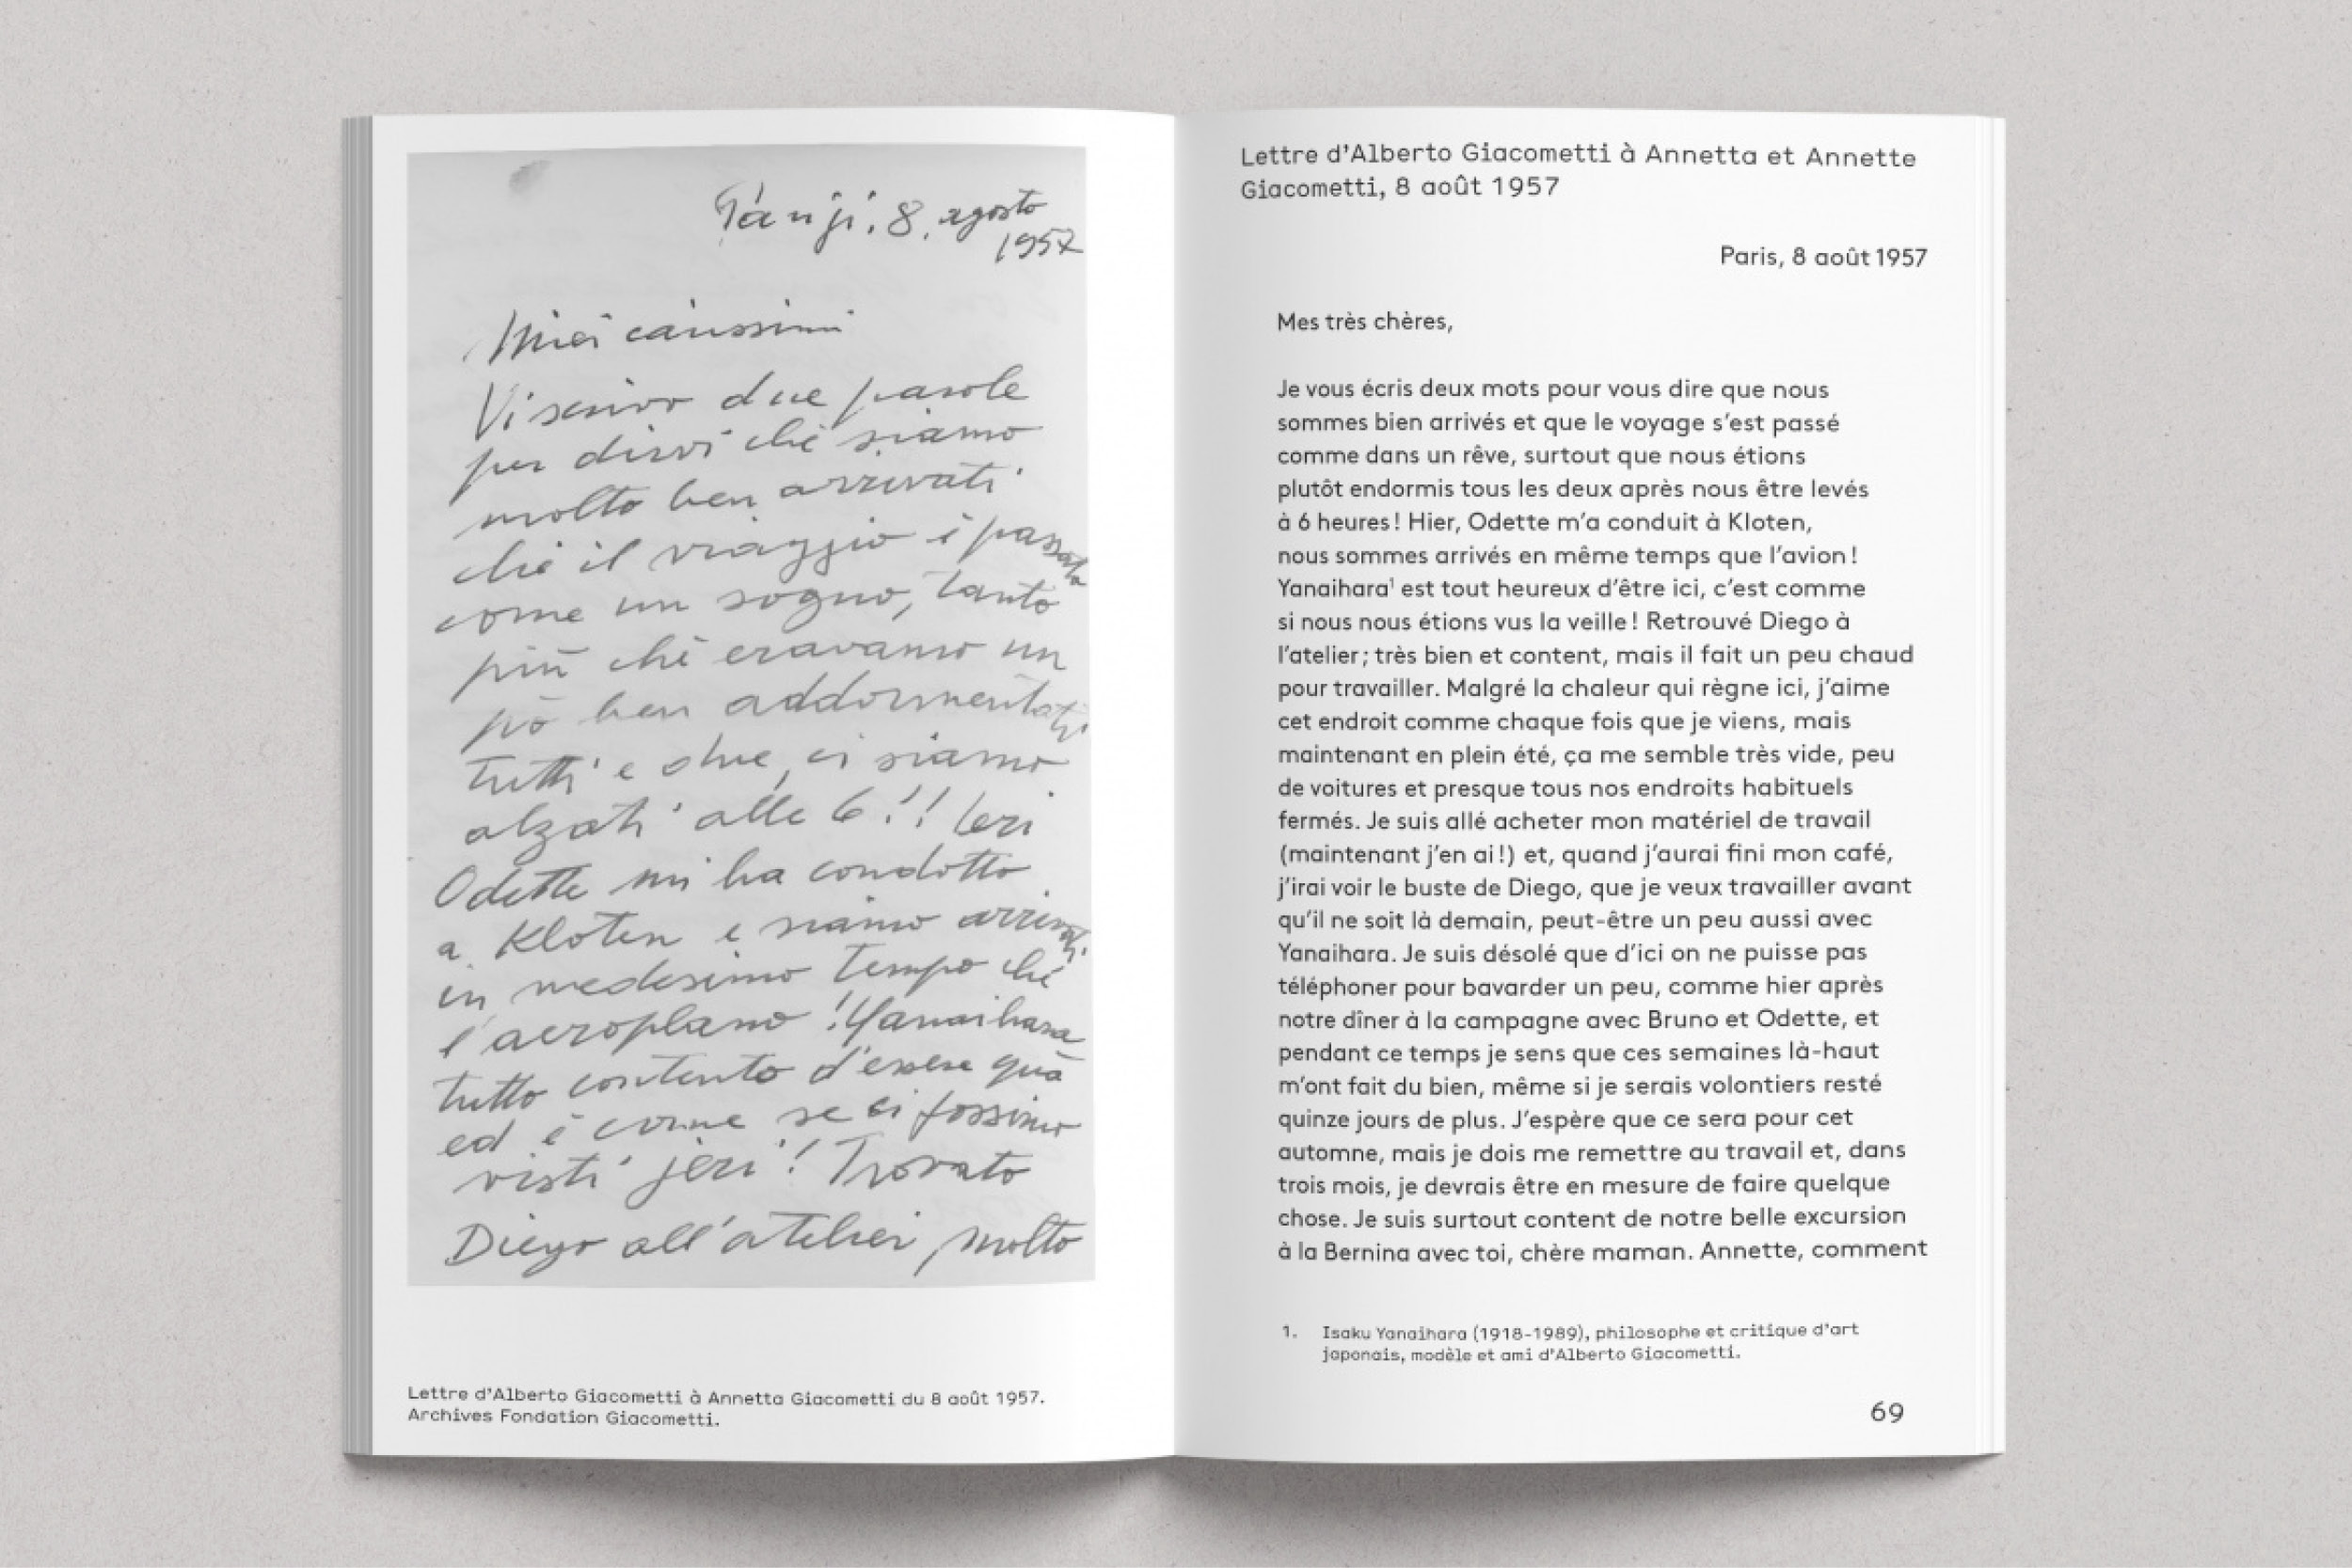 Parigi, 8. agosto
1957
Miei carissimi
Vi scrivo due parole
per dirvi che siamo
molto ben arrivati
chè il viaggio è passato
come un sogno, tanto
più chè eravamo un
pò ben addormentati
tutti e due, ci siamo
alzati alle 6!! Ieri
Odette mi ha condotto
a Kloten e siamo arrivati
in medesimo tempo chè
l'aeroplano! Yanaihara
tutto contento d'essere quà
ed è come se ci fossimo
visti jeri! Trovato
Diego all'atelier, molto
Lettre d'Alberto Giacometti à Annetta Giacometti du 8 août 1957.
Archives Fondation Giacometti.
Lettre d'Alberto Giacometti à Annetta et Annette
Giacometti, 8 août 1957
Paris, 8 août 1957
Mes très chères,
Je vous écris deux mots pour vous dire que nous
sommes bien arrivés et que le voyage s'est passé
comme dans un rêve, surtout que nous étions
plutôt endormis tous les deux après nous être levés
à 6 heures ! Hier, Odette m'a conduit à Kloten,
nous sommes arrivés en même temps que l'avion !
Yanaihara¹ est tout heureux d'être ici, c'est comme
si nous nous étions vus la veille ! Retrouvé Diego à
l'atelier ; très bien et content, mais il fait un peu chaud
pour travailler. Malgré la chaleur qui règne ici, j'aime
cet endroit comme chaque fois que je viens, mais
maintenant en plein été, ça me semble très vide, peu
de voitures et presque tous nos endroits habituels
fermés. Je suis allé acheter mon matériel de travail
(maintenant j'en ai !) et, quand j'aurai fini mon café,
j'irai voir le buste de Diego, que je veux travailler avant
qu'il ne soit là demain, peut-être un peu aussi avec
Yanaihara. Je suis désolé que d'ici on ne puisse pas
téléphoner pour bavarder un peu, comme hier après
notre dîner à la campagne avec Bruno et Odette, et
pendant ce temps je sens que ces semaines là-haut
m'ont fait du bien, même si je serais volontiers resté
quinze jours de plus. J'espère que ce sera pour cet
automne, mais je dois me remettre au travail et, dans
trois mois, je devrais être en mesure de faire quelque
chose. Je suis surtout content de notre belle excursion
à la Bernina avec toi, chère maman. Annette, comment
1. Isaku Yanaihara (1918-1989), philosophe et critique d'art
japonais, modèle et ami d'Alberto Giacometti.
69